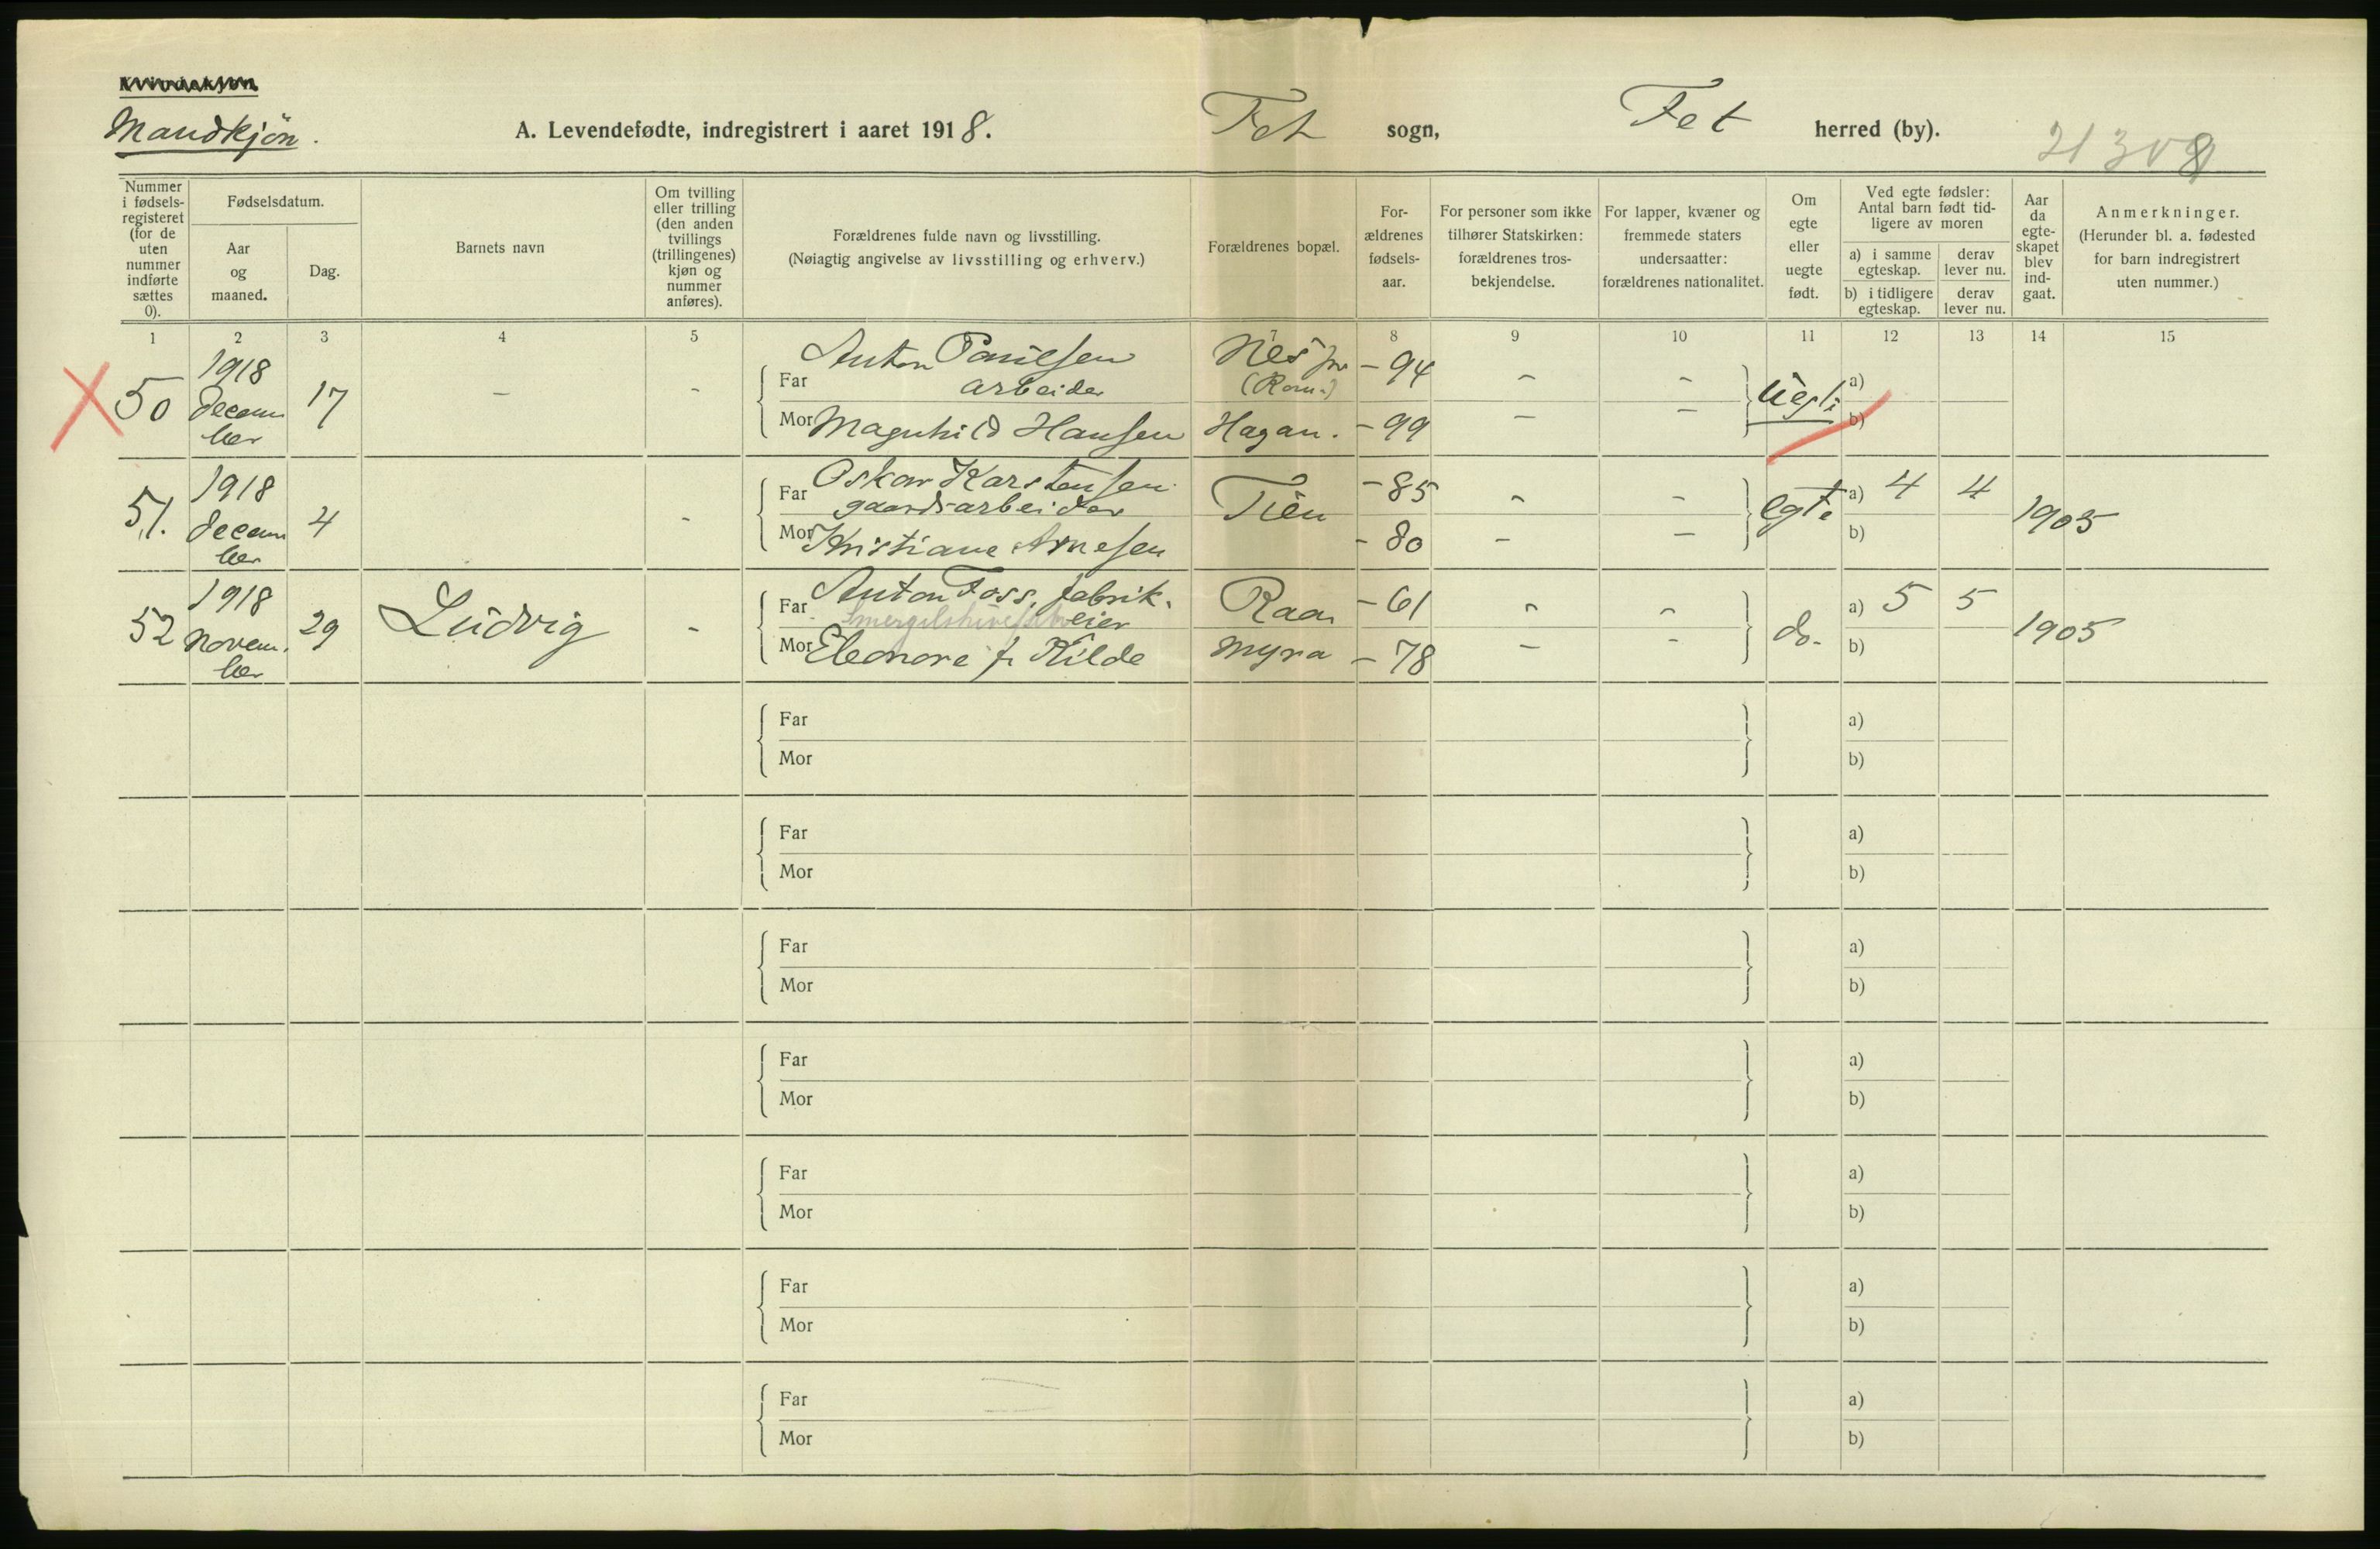 Mandkjøn.
A. Levendefødte, indregistrert i aaret 1918.
Fet sogn,
Fet herred (by).
Nummer i fødsels-registeret (for de uten nummer indførte sættes 0).
Fødselsdatum.
Aar og maaned.
Dag.
Barnets navn
Om tvilling eller trilling (den anden tvillings (trillingenes) kjøn og nummer anføres).
Forældrenes fulde navn og livsstilling.
(Nøiagtig angivelse av livsstilling og erhverv.)
Forældrenes bopæl.
For-ældrenes fødsels-aar.
For personer som ikke tilhører Statskirken: forældrenes tros-bekjendelse.
For lapper, kvæner og fremmede staters undersaatter: forældrenes nationalitet.
Om egte eller uegte født.
Ved egte fødsler: Antal barn født tid-ligere av moren
a) i samme egteskap.
derav lever nu.
b) i tidligere egteskap.
derav lever nu.
Aar da egte-skapet blev ind-gaat.
Anmerkninger.
(Herunder bl. a. fødested for barn indregistrert uten nummer.)
1 2 3 4 5 7 8 9 10 11 12 13 14 15
50 1918 decem ber 17 - -
Far Anton Paulsen arbeider Nes pr (Rom.) - 94 - -
Mor Magnhild Hansen Hagan. - 99 - -
Uegte a)
b)
51. 1918 decem ber 4 -
Far Oskar Karstensen gaardsarbeider Tien - 85 - -
Mor Kristiane Arnesen - 80 - -
egte a) 4 4 1905
b)
52 1918 novem. ber 29 Ludvig -
Far Anton Foss, fabrik. eier Raa - 61 - -
Mor Eleonore f. Kilde myra - 78 - -
do. a) 5 5 1905
b)
Far a)
Mor b)
Far a)
Mor b)
Far a)
Mor b)
Far a)
Mor b)
Far a)
Mor b)
Far a)
Mor b)
Far a)
Mor b)